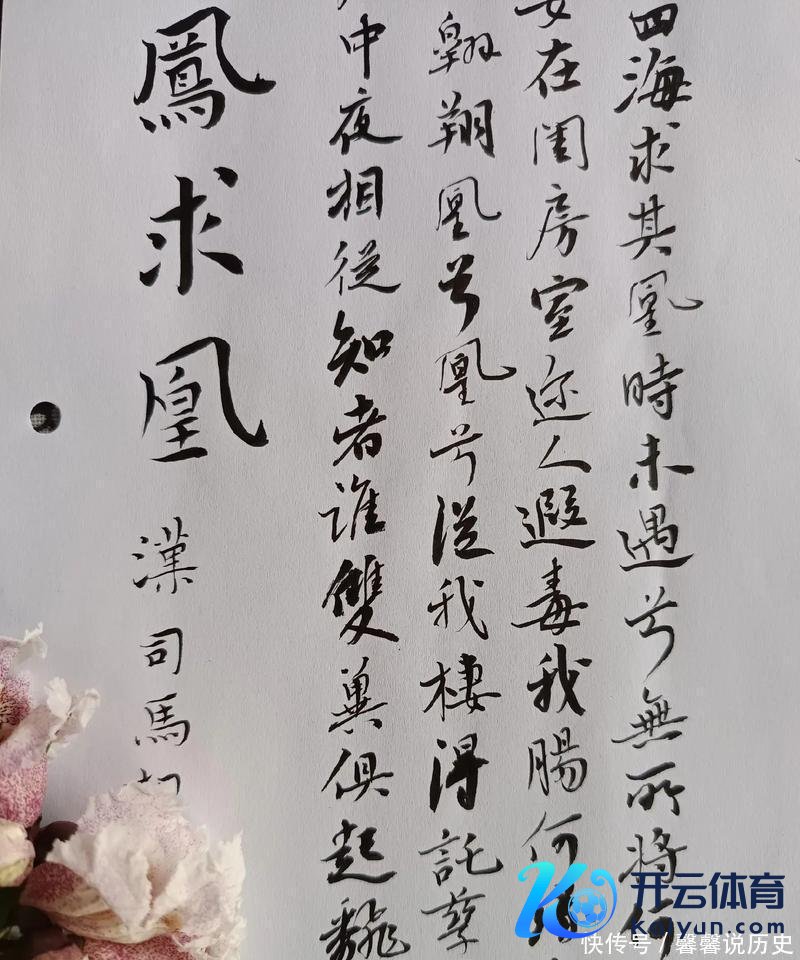 四海求其凰時未遇兮無所將何
女在閨房室迩人遐毒我腸何
翱翔凰兮凰兮從我棲得託孳
中夜相從知者誰雙翼俱起翻
鳳求凰
漢司馬
开云体育
Kaiyun.com
快传号/馨馨说历史